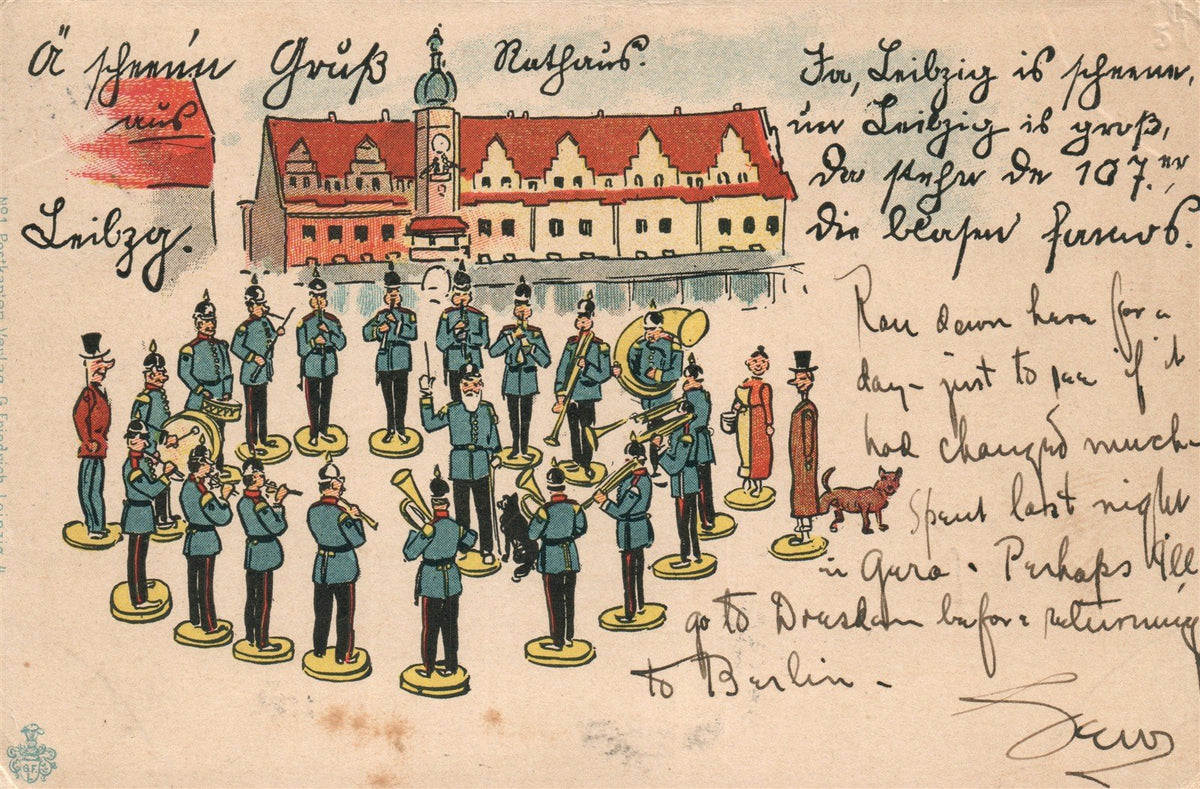 Ä scheen'n Gruß
aus
Leibzg.
Rathaus.
Ja, Leibzig is scheene,
un Leibzig is groß,
Da stehn de 107.er
die blasen famos.
Ran down here for a
day - just to see if it
had changed much -
Spent last night
in Gera. Perhaps I'll
go to Dresden before returning
to Berlin -
No 1 Postkarten Verlag G. Friedrich, Leipzig
G.F.
L